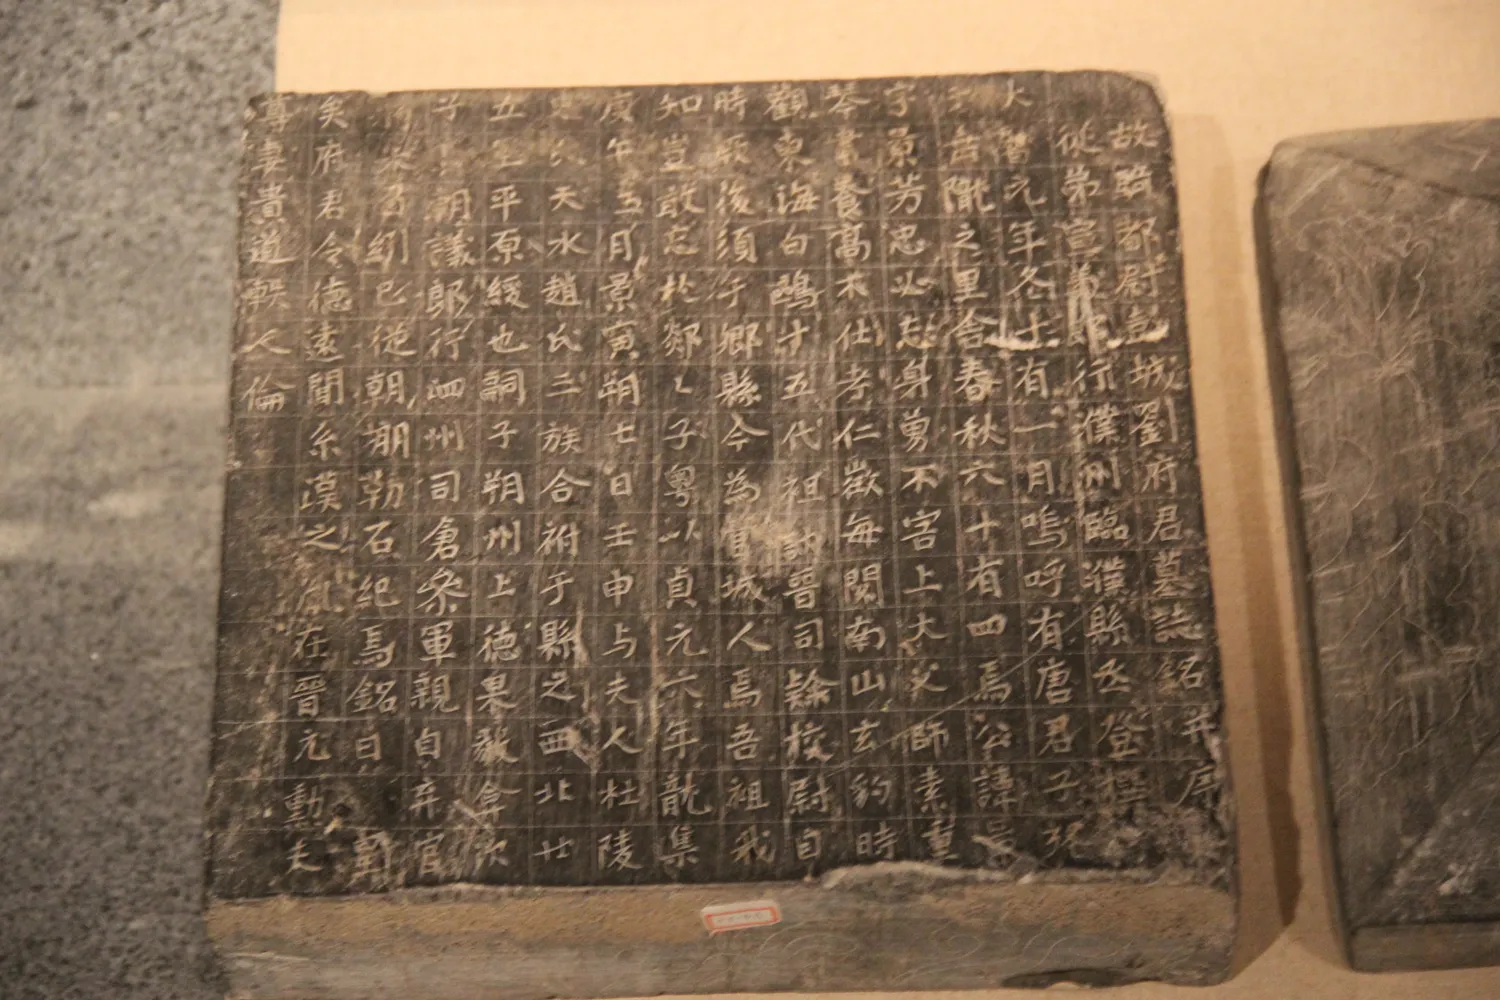 故騎都尉彭城劉府君墓誌銘并序
從弟宣義郎行濮州臨濮縣丞登撰
大曆元年冬十有一月嗚呼有唐君子
之里舍春秋六十有四焉公諱
字景芳忠必忘身勇不害上大父師素重
琴書養高不仕考仁徽每閱南山玄豹時
觀東海白鷗才五代祖訥晉司隸校尉自
時厥後須于鄉縣今為彭城人焉吾祖我
知豈敢忘於郯郯子粤以貞元六年龍集
庚午五月景寅朔七日壬申与夫人杜陵
天水趙氏三族合祔于縣之西北廿
五里平原綬也嗣子朔州上德果毅弇次
子朝議郎行泗州司倉叅軍親自弃官
躬已從朝朞勒石紀焉銘曰 劉
矣府君令德遠聞系漢之胤在晉元勳夫
尊妻貴道毂人倫